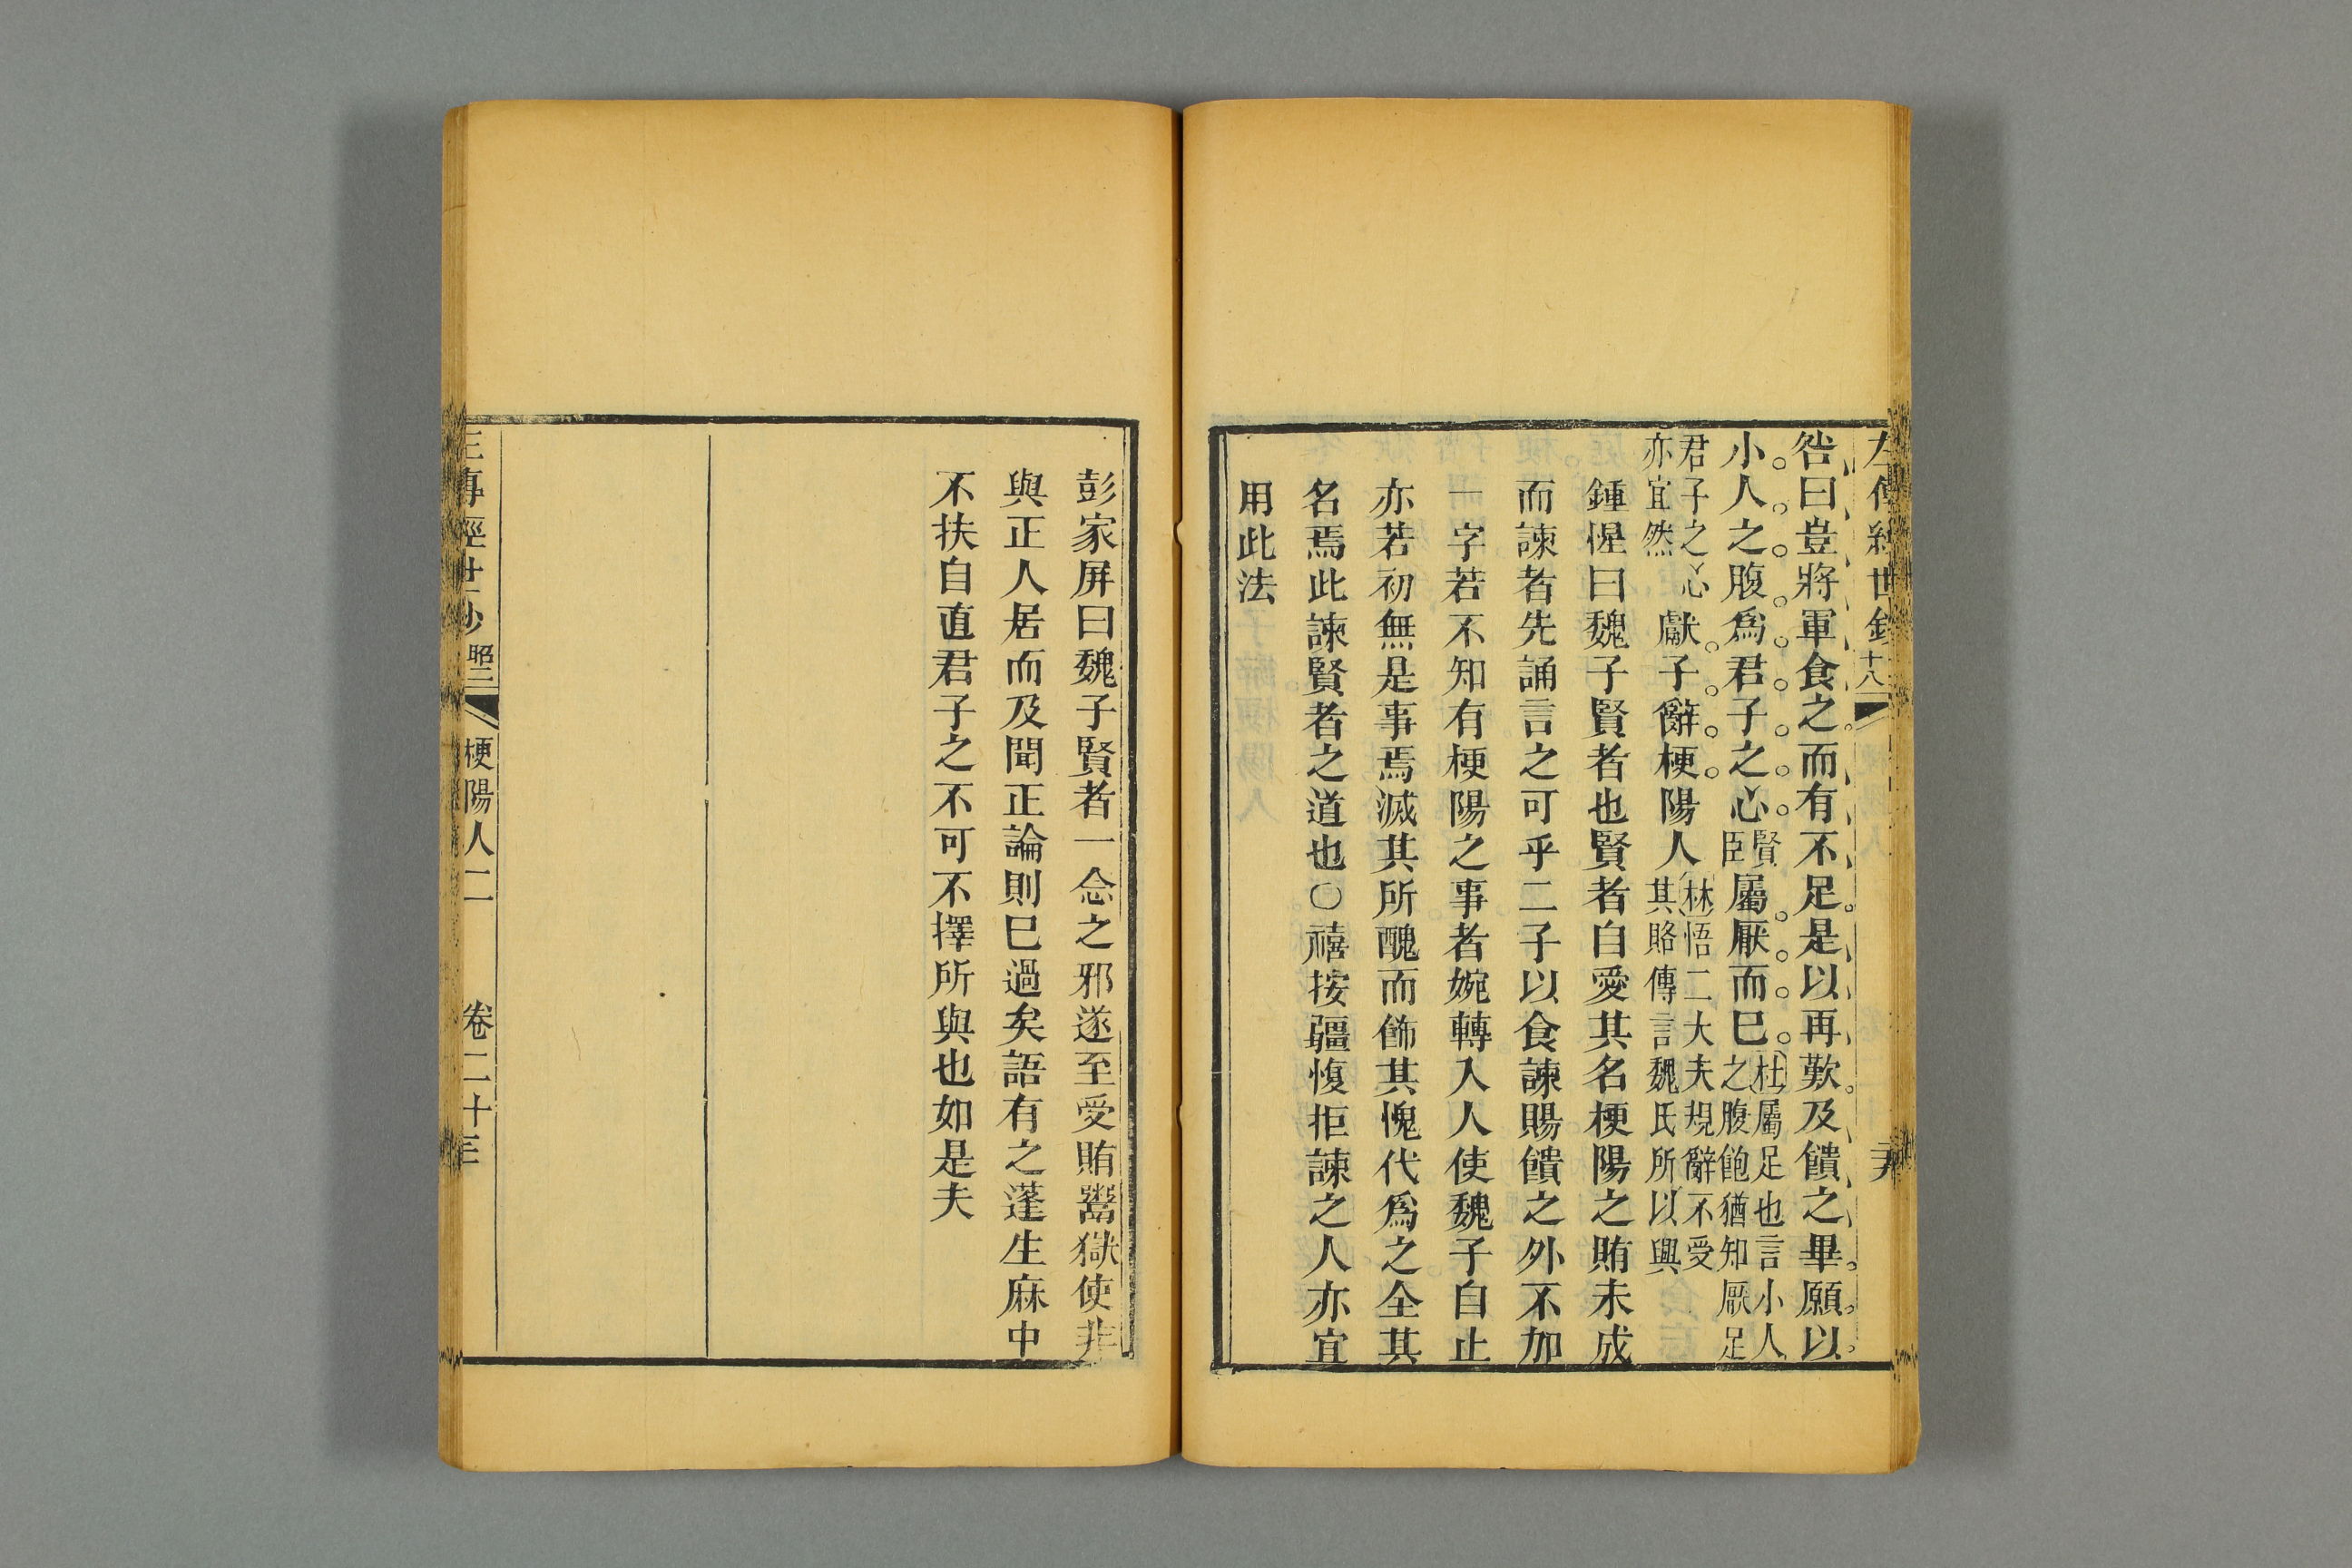 咎曰豈將軍食之而有不足是以再歎及饋之畢願以
小人之腹爲君子之心賢臣屬厭而已杜屬足也言小人之腹飽猶知厭足
君子之心亦宜然獻子辭梗陽人林悟二大夫規辭不受其賂傳言魏氏所以興
鍾惺曰魏子賢者也賢者自愛其名梗陽之賄未成
而諫者先誦言之可乎二子以食諫賜饋之外不加
一字若不知有梗陽之事者婉轉入人使魏子自止
亦若初無是事焉滅其所醜而飾其愧代爲之全其
名焉此諫賢者之道也○禧按彊愎拒諫之人亦宜
用此法
彭家屏曰魏子賢者一念之邪遂至受賄鬻獄使非
與正人居而及聞正論則已過矣語有之蓬生麻中
不扶自直君子之不可不擇所與也如是夫
梗陽人二 卷二十